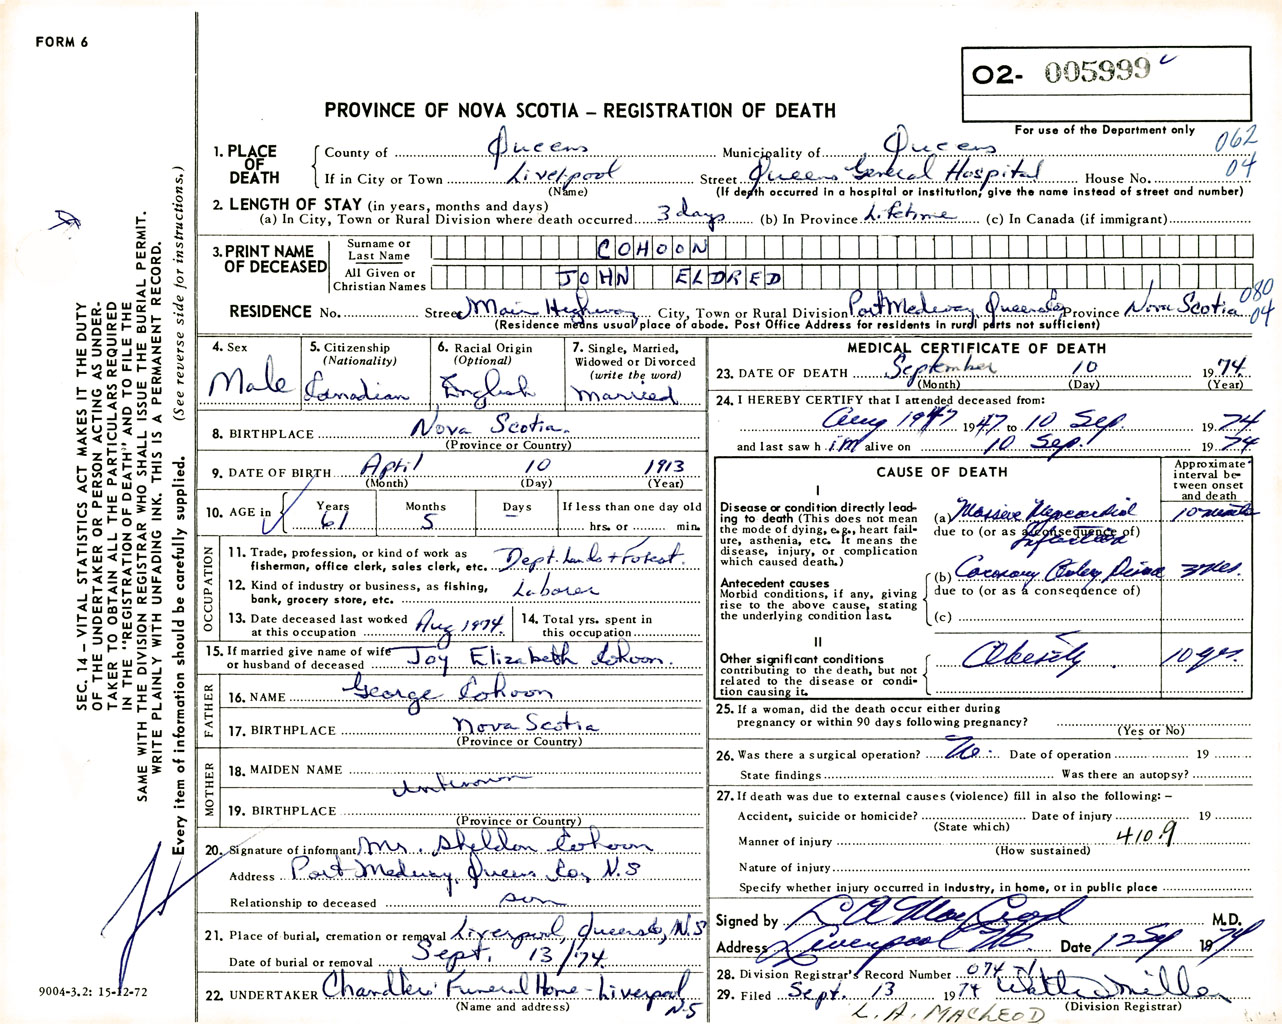 FORM 6
O2- 005999
PROVINCE OF NOVA SCOTIA – REGISTRATION OF DEATH
For use of the Department only
062
04
1. PLACE OF DEATH
County of Queens Municipality of Queens
If in City or Town Liverpool Street Queens General Hospital House No.
(Name) (If death occurred in a hospital or institution, give the name instead of street and number)
2. LENGTH OF STAY (in years, months and days)
(a) In City, Town or Rural Division where death occurred 3 days (b) In Province Lifetime (c) In Canada (if immigrant)
3. PRINT NAME OF DECEASED
Surname or Last Name COHOON
All Given or Christian Names JOHN ELDRED
RESIDENCE No. Street Main Highway City, Town or Rural Division Port Medway, Queens Co Province Nova Scotia
080
04
(Residence means usual place of abode. Post Office Address for residents in rural parts not sufficient)
4. Sex
Male
5. Citizenship
(Nationality)
Canadian
6. Racial Origin
(Optional)
English
7. Single, Married,
Widowed or Divorced
(write the word)
Married
8. BIRTHPLACE Nova Scotia.
(Province or Country)
9. DATE OF BIRTH April 10 1913
(Month) (Day) (Year)
10. AGE in
Years 61
Months 5
Days –
If less than one day old
hrs. or min.
OCCUPATION
11. Trade, profession, or kind of work as
fisherman, office clerk, sales clerk, etc. Dept. Lands + Forest.
12. Kind of industry or business, as fishing,
bank, grocery store, etc. Laborer
13. Date deceased last worked
at this occupation Aug 1974.
14. Total yrs. spent in
this occupation
15. If married give name of wife
or husband of deceased Joy Elizabeth Cohoon.
FATHER
16. NAME George Cohoon
17. BIRTHPLACE Nova Scotia
(Province or Country)
MOTHER
18. MAIDEN NAME
unknown
19. BIRTHPLACE
(Province or Country)
20. Signature of informant Mr. Sheldon Cohoon
Address Port Medway, Queens Co, N.S
Relationship to deceased son
21. Place of burial, cremation or removal Liverpool, Queens Co, N.S
Date of burial or removal Sept. 13/74
22. UNDERTAKER Chandlers' Funeral Home - Liverpool
N.S
(Name and address)
MEDICAL CERTIFICATE OF DEATH
23. DATE OF DEATH September 10 1974.
(Month) (Day) (Year)
24. I HEREBY CERTIFY that I attended deceased from:
Aug 1947 1947 to 10 Sep. 1974
and last saw him alive on 10 Sep! 1974.
CAUSE OF DEATH
Approximate
interval be-
tween onset
and death
I
Disease or condition directly lead-
ing to death (This does not mean
the mode of dying, e.g., heart fail-
ure, asthenia, etc. It means the
disease, injury, or complication
which caused death.)
(a) Massive Myocardial 10 minutes
due to (or as a consequence of)
Infarction
Antecedent causes
Morbid conditions, if any, giving
rise to the above cause, stating
the underlying condition last.
(b) Coronary Artery Disease
due to (or as a consequence of)
(c)
II
Other significant conditions
contributing to the death, but not
related to the disease or condi-
tion causing it.
Obesity 10 yrs.
25. If a woman, did the death occur either during
pregnancy or within 90 days following pregnancy?
(Yes or No)
26. Was there a surgical operation? No. Date of operation 19
State findings Was there an autopsy?
27. If death was due to external causes (violence) fill in also the following: –
Accident, suicide or homicide? Date of injury 19
(State which)
Manner of injury 410.9
(How sustained)
Nature of injury
Specify whether injury occurred in Industry, in home, or in public place
Signed by L A MacLeod M.D.
Address Liverpool NS Date 12 Sep 1974
28. Division Registrar's Record Number 074
29. Filed Sept. 13 1974 Miller
(Division Registrar)
L. A. MACLEOD
SEC. 14 – VITAL STATISTICS ACT MAKES IT THE DUTY
OF THE UNDERTAKER OR PERSON ACTING AS UNDER-
TAKER TO OBTAIN ALL THE PARTICULARS REQUIRED
IN THE "REGISTRATION OF DEATH" AND TO FILE THE
SAME WITH THE DIVISION REGISTRAR WHO SHALL ISSUE THE BURIAL PERMIT.
WRITE PLAINLY WITH UNFADING INK. THIS IS A PERMANENT RECORD.
Every item of information should be carefully supplied. (See reverse side for instructions.)
9004-3.2: 15-12-72